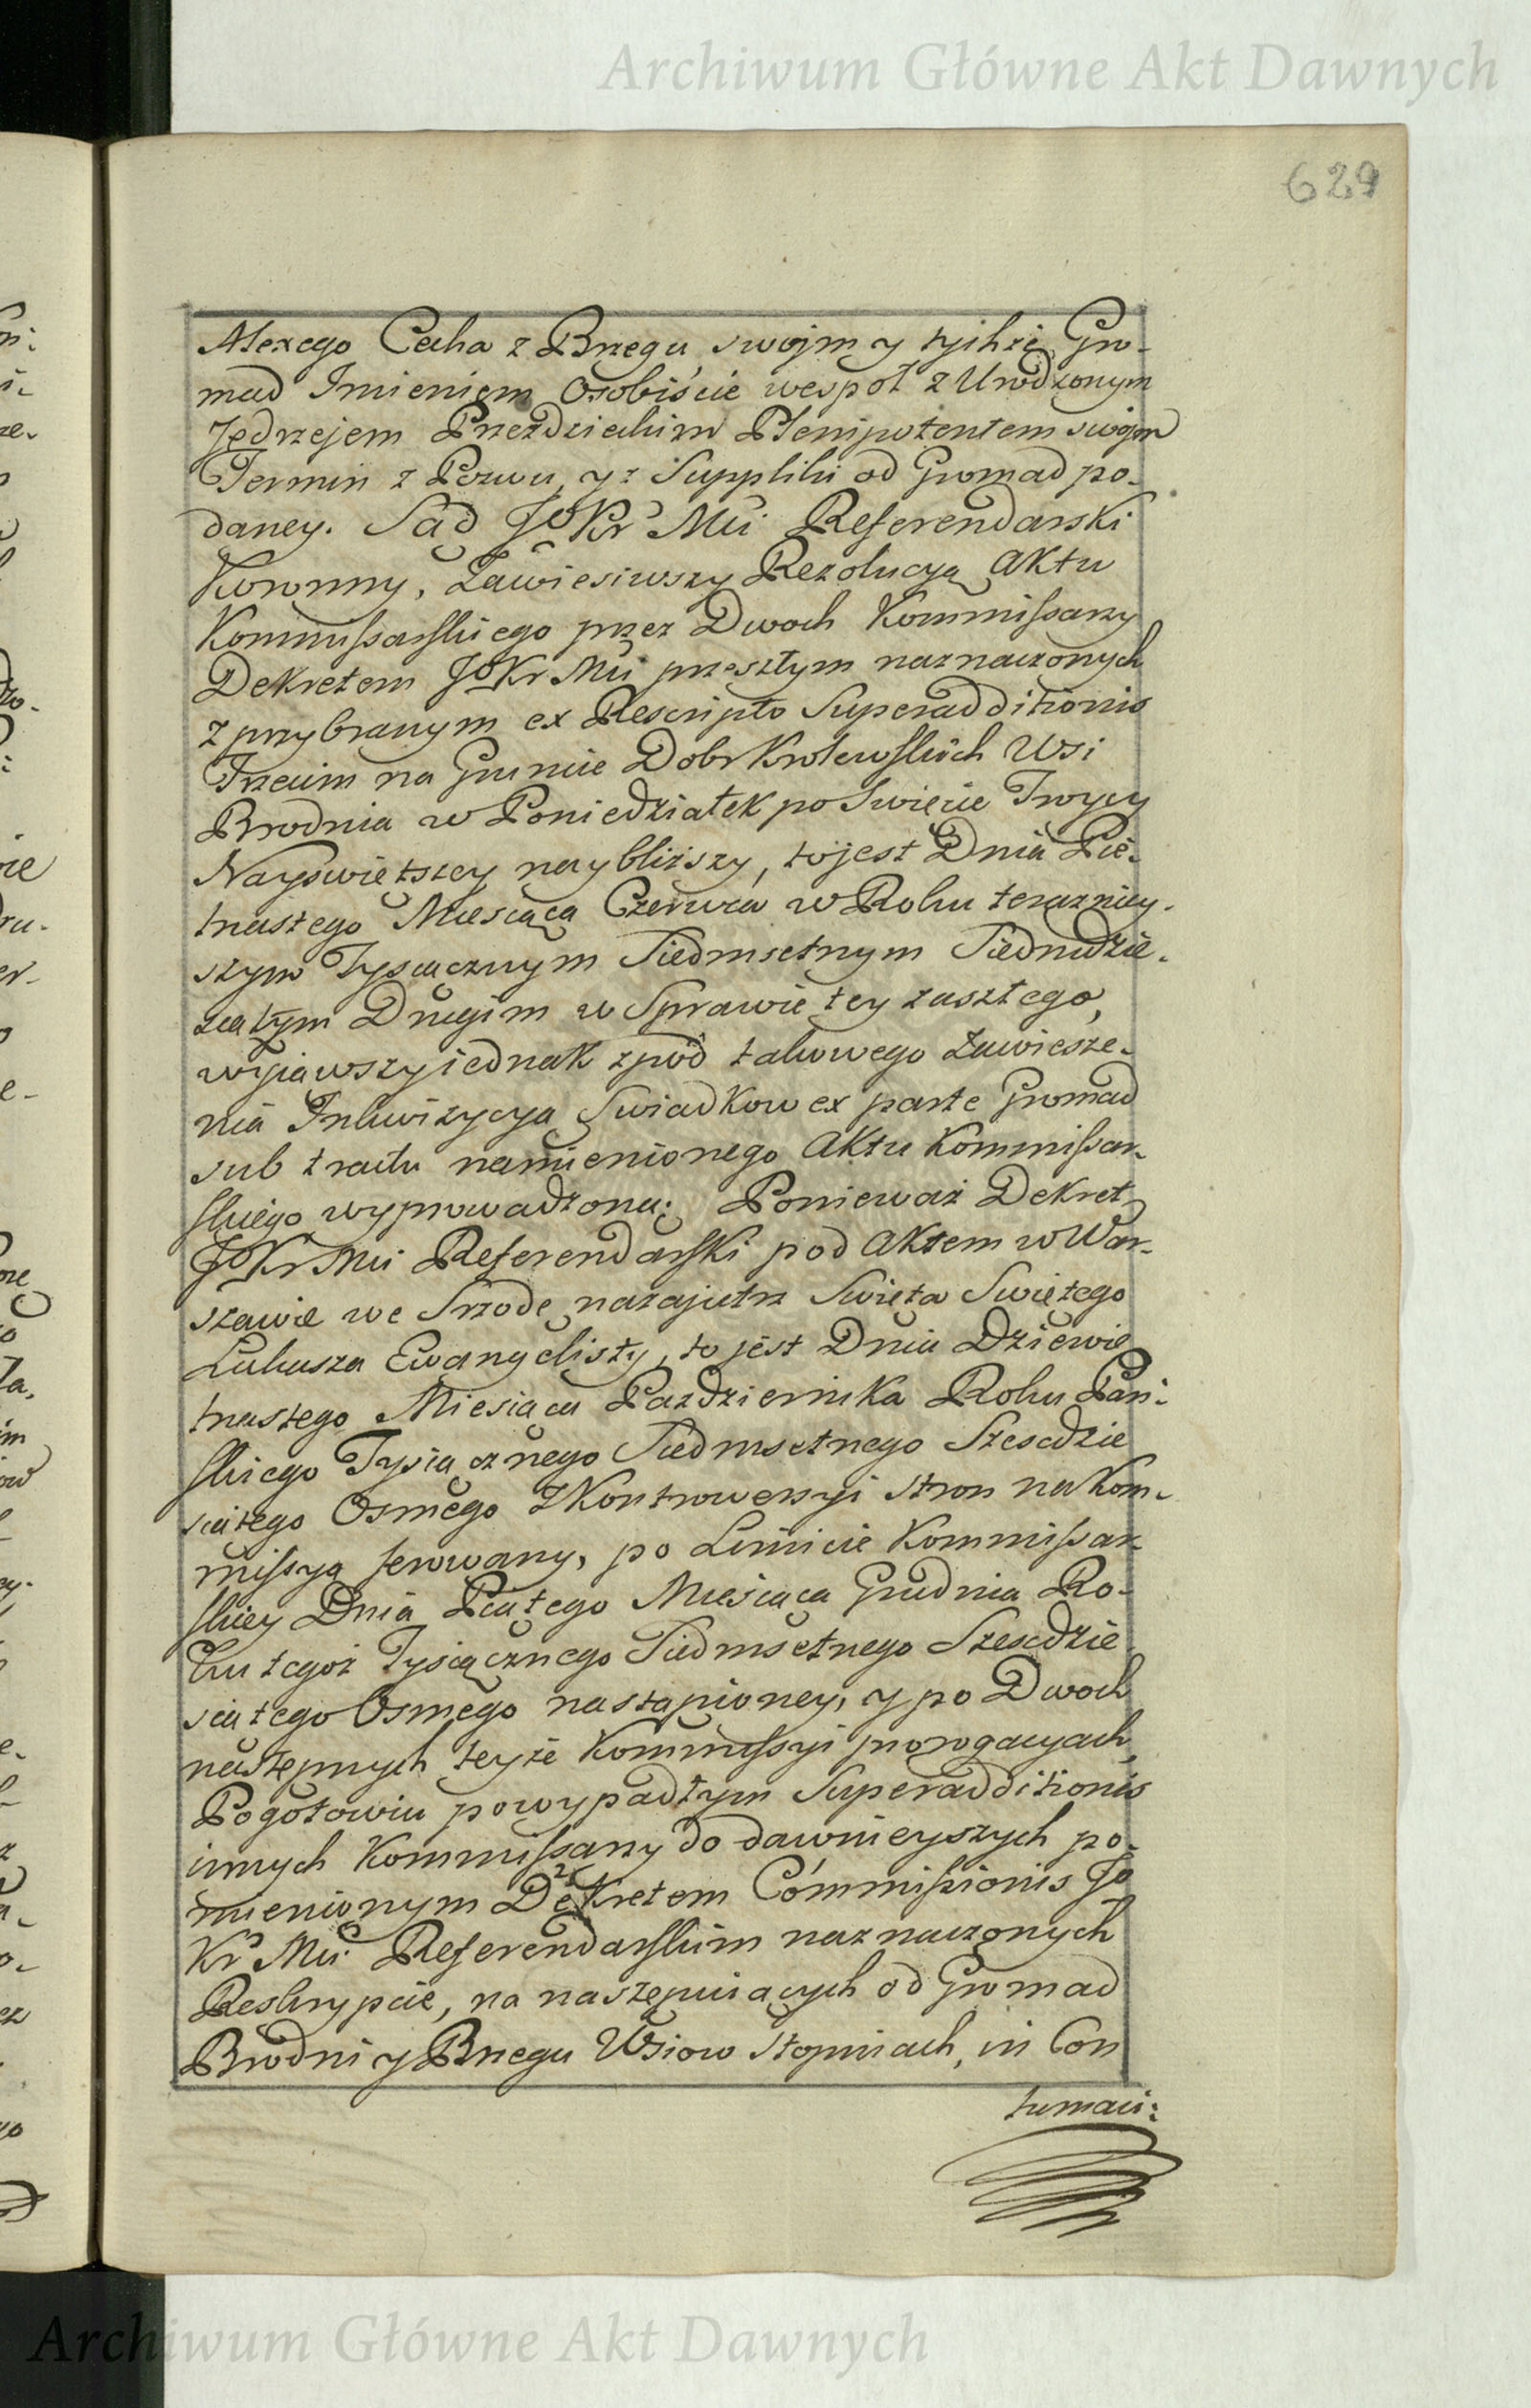 Archiwum Główne Akt Dawnych
629
Alexego Cecha z Brzegu swojm y tychże Gro-
mad Imieniem Osobiście wespoł z Urodzonym
Jędrzejem Przezdzieckim Plenipotentem swojm
Termin z Pozwu, y z Suppliki od Gromad po-
daney. Sąd JoKr Mci Referendarski
Koronny, Zawiesiwszy Rezolucyą Aktu
Kommissarskiego przez Dwoch Kommissarzy
Dekretem JoKr Mci przeszłym naznaczonych
z przybranym ex Rescripto Superadditionis
Trzecim na Gruncie Dobr Krolewskich Wsi
Brodnia w Poniedziałek po Swięcie Troycy
Nayswiętszey naybliższy, to jest Dnia Pię-
tnastego Miesiąca Czerwca w Roku terazniey-
szym Tysiącznym Siedmsetnym Siedmdzie-
siątym Drugim w Sprawie tey zaszłego,
wyjąwszy jednak zpod takowego Zawiesze-
nia Inkwizycyą Swiadkow ex parte Gromad
sub tractu namienionego Aktu Kommissar-
skiego wyprowadzoną: Ponieważ Dekret
JoKr Mci Referendarski pod Aktem w War-
szawie we Srzodę nazajutrz Swięta Swiętego
Łukasza Ewangelisty, to jest Dnia Dziewię
tnastego Miesiąca Pazdziernika Roku Pań-
skiego Tysiącznego Siedmsetnego Szescdzie
siątego Osmego z Kontrowersyi stron na Kom-
missyą ferowany, po Limicie Kommissar
skiey Dnia Piątego Miesiąca Grudnia Ro-
ku tegoż Tysiącznego Siedmsetnego Szescdzie
siątego Osmego nastąpioney, y po Dwoch
następnych teyże Kommissyi prorogacyach,
Pogotowiu po wypadłym Superadditionis
innych Kommissarzy do dawnieyszych po-
mienionym Dekretem Commissionis Jo
Kr Mci Referendarskim naznaczonych
Reskrypcie, na następuiących od Gromad
Brodni y Brzegu Wsiow stopniach, in Con
tumaci:
Archiwum Główne Akt Dawnych